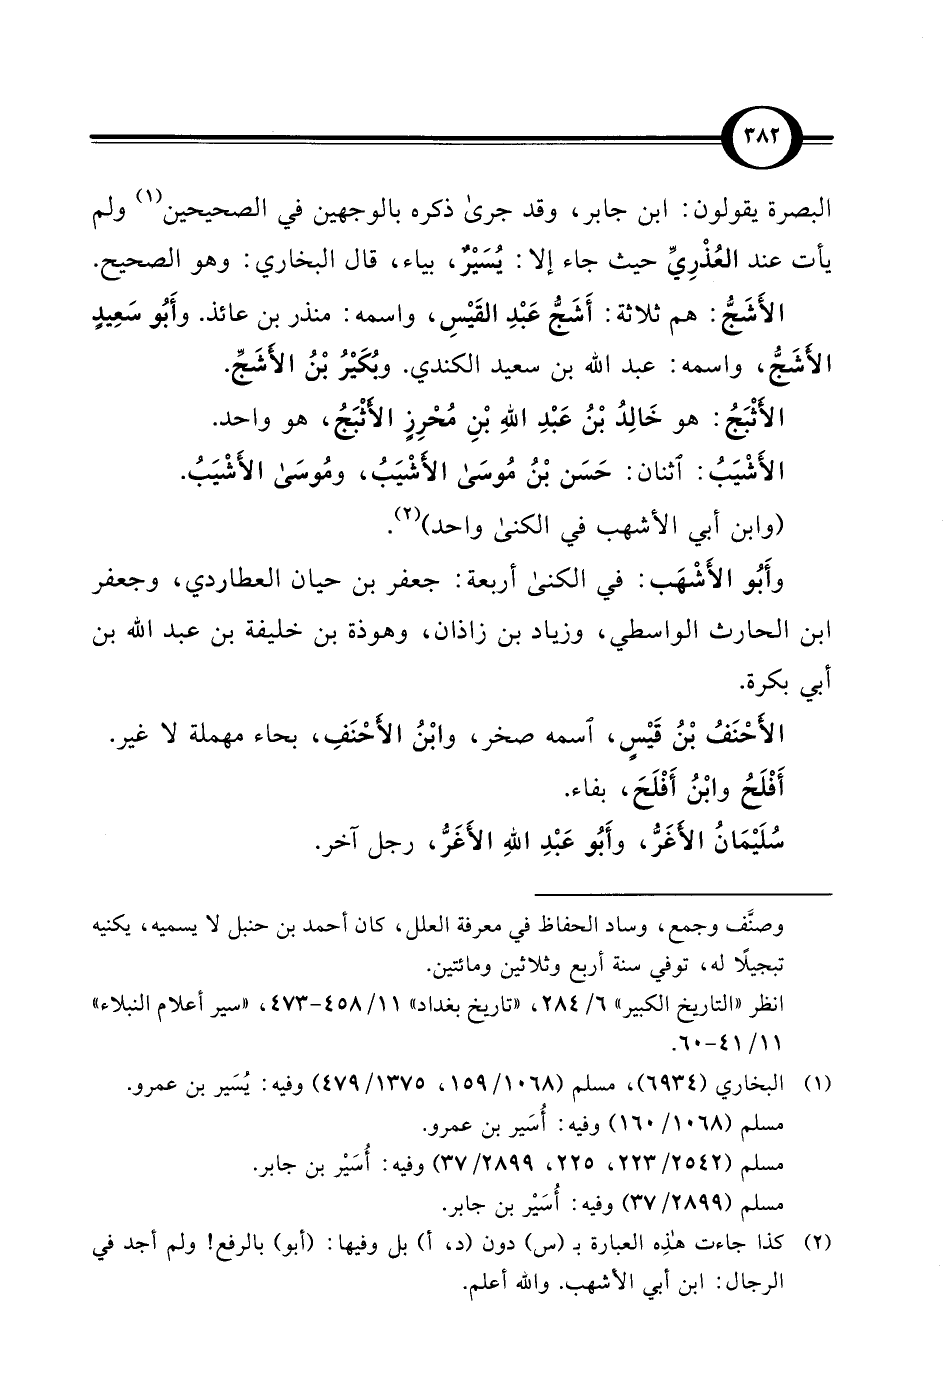 ٣٨٢
البصرة يقولون: ابن جابر، وقد جرىٰ ذكره بالوجهين في الصحيحين(١) ولم
يأت عند العُذْرِيِّ حيث جاء إلا: يُسَيْرٌ، بياء، قال البخاري: وهو الصحيح.
الأَشَجُّ: هم ثلاثة: أَشَجُّ عَبْدِ القَيْسِ، واسمه: منذر بن عائذ. وأَبُو سَعِيدٍ
الأَشَجُّ، واسمه: عبد الله بن سعيد الكندي. وبُكَيْرُ بْنُ الأَشَجِّ.
الأَثْبَجُ: هو خَالِدُ بْنُ عَبْدِ اللهِ بْنِ مُحْرِزٍ الأَثْبَجُ، هو واحد.
الأَشْيَبُ: ٱثنان: حَسَن بْنُ مُوسَىٰ الأَشْيَبُ، ومُوسَىٰ الأَشْيَبُ.
(وابن أبي الأشهب في الكنىٰ واحد)(٢).
وأَبُو الأَشْهَب: في الكنىٰ أربعة: جعفر بن حيان العطاردي، وجعفر
ابن الحارث الواسطي، وزياد بن زاذان، وهوذة بن خليفة بن عبد الله بن
أبي بكرة.
الأَحْنَفُ بْنُ قَيْسٍ، ٱسمه صخر، وابْنُ الأَحْنَفِ، بحاء مهملة لا غير.
أَفْلَحُ وابْنُ أَفْلَحَ، بفاء.
سُلَيْمَانُ الأَغَرُّ، وأَبُو عَبْدِ اللهِ الأَغَرُّ، رجل آخر.
وصنَّف وجمع، وساد الحفاظ في معرفة العلل، كان أحمد بن حنبل لا يسميه، يكنيه
تبجيلًا له، توفي سنة أربع وثلاثين ومائتين.
انظر «التاريخ الكبير» ٦/ ٢٨٤، «تاريخ بغداد» ١١/ ٤٥٨-٤٧٣، «سير أعلام النبلاء»
١١/ ٤١-٦٠.
(١) البخاري (٦٩٣٤)، مسلم (١٠٦٨/ ١٥٩، ١٣٧٥/ ٤٧٩) وفيه: يُسَير بن عمرو.
مسلم (١٠٦٨/ ١٦٠) وفيه: أُسَير بن عمرو.
مسلم (٢٥٤٢/ ٢٢٣، ٢٢٥، ٢٨٩٩/ ٣٧) وفيه: أُسَيْر بن جابر.
مسلم (٢٨٩٩/ ٣٧) وفيه: أُسَيْر بن جابر.
(٢) كذا جاءت هٰذِه العبارة بـ (س) دون (د، أ) بل وفيها: (أبو) بالرفع! ولم أجد في
الرجال: ابن أبي الأشهب. والله أعلم.